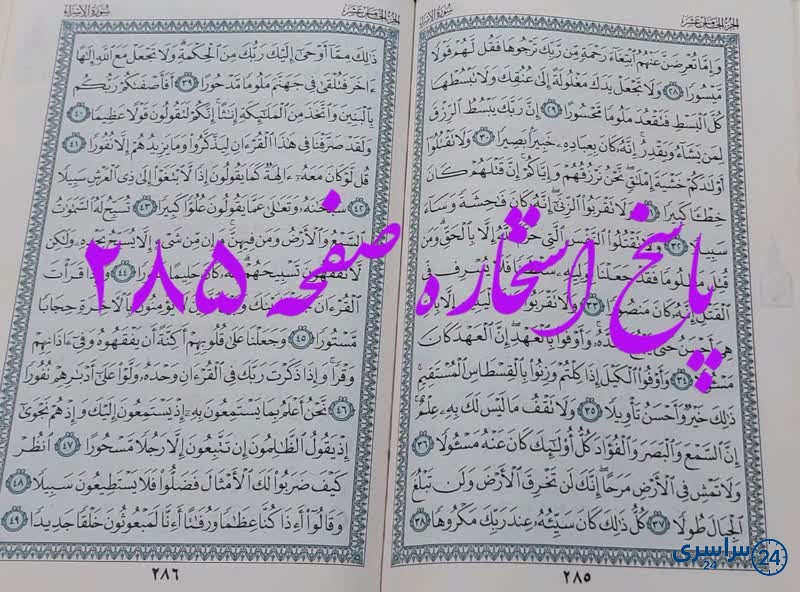 الجزء الخامس عشر
سورة الإسراء
وَإِمَّا تُعْرِضَنَّ عَنْهُمُ ابْتِغَاءَ رَحْمَةٍ مِّن رَّبِّكَ تَرْجُوهَا فَقُل لَّهُمْ قَوْلًا
مَّيْسُورًا ٢٨ وَلَا تَجْعَلْ يَدَكَ مَغْلُولَةً إِلَىٰ عُنُقِكَ وَلَا تَبْسُطْهَا
كُلَّ الْبَسْطِ فَتَقْعُدَ مَلُومًا مَّحْسُورًا ٢٩ إِنَّ رَبَّكَ يَبْسُطُ الرِّزْقَ
لِمَن يَشَاءُ وَيَقْدِرُ إِنَّهُ كَانَ بِعِبَادِهِ خَبِيرًا بَصِيرًا ٣٠ وَلَا تَقْتُلُوا
أَوْلَادَكُمْ خَشْيَةَ إِمْلَاقٍ نَّحْنُ نَرْزُقُهُمْ وَإِيَّاكُمْ إِنَّ قَتْلَهُمْ كَانَ
خِطْئًا كَبِيرًا ٣١ وَلَا تَقْرَبُوا الزِّنَىٰ إِنَّهُ كَانَ فَاحِشَةً وَسَاءَ
سَبِيلًا ٣٢ وَلَا تَقْتُلُوا النَّفْسَ الَّتِي حَرَّمَ إِلَّا بِالْحَقِّ وَمَن
قُتِلَ مَظْلُومًا فَقَدْ جَعَلْنَا لِوَلِيِّهِ سُلْطَانًا فَلَا يُسْرِف فِّي
الْقَتْلِ إِنَّهُ كَانَ مَنصُورًا ٣٣ وَلَا تَقْرَبُوا الْيَتِيمِ إِلَّا بِالَّتِي
هِيَ أَحْسَنُ حَتَّىٰ يَبْلُغَ أَشُدَّهُ وَأَوْفُوا بِالْعَهْدِ إِنَّ الْعَهْدَ كَانَ
مَسْئُولًا ٣٤ وَأَوْفُوا الْكَيْلَ إِذَا كِلْتُمْ وَزِنُوا بِالْقِسْطَاسِ الْمُسْتَقِيمِ
ذَٰلِكَ خَيْرٌ وَأَحْسَنُ تَأْوِيلًا ٣٥ وَلَا تَقْفُ مَا لَيْسَ لَكَ بِهِ عِلْمٌ
إِنَّ السَّمْعَ وَالْبَصَرَ وَالْفُؤَادَ كُلُّ أُولَٰئِكَ كَانَ عَنْهُ مَسْئُولًا ٣٦
وَلَا تَمْشِ فِي الْأَرْضِ مَرَحًا إِنَّكَ لَن تَخْرِقَ الْأَرْضَ وَلَن تَبْلُغَ
الْجِبَالَ طُولًا ٣٧ كُلُّ ذَٰلِكَ كَانَ سَيِّئُهُ عِندَ رَبِّكَ مَكْرُوهًا ٣٨
٢٨٥
الجزء الخامس عشر
سورة الإسراء
ذَٰلِكَ مِمَّا أَوْحَىٰ إِلَيْكَ رَبُّكَ مِنَ الْحِكْمَةِ وَلَا تَجْعَلْ مَعَ اللَّهِ إِلَٰهًا
ءَاخَرَ فَتُلْقَىٰ فِي جَهَنَّمَ مَلُومًا مَّدْحُورًا ٣٩ أَفَأَصْفَاكُمْ رَبُّكُم
بِالْبَنِينَ وَاتَّخَذَ مِنَ الْمَلَائِكَةِ إِنَاثًا إِنَّكُمْ لَتَقُولُونَ قَوْلًا عَظِيمًا ٤٠
وَلَقَدْ صَرَّفْنَا فِي هَٰذَا الْقُرْءَانِ لِيَذَّكَّرُوا وَمَا يَزِيدُهُمْ إِلَّا نُفُورًا ٤١
قُل لَّوْ كَانَ مَعَهُ ءَالِهَةٌ كَمَا يَقُولُونَ إِذًا لَّابْتَغَوْا إِلَىٰ ذِي الْعَرْشِ سَبِيلًا
٤٢ سُبْحَانَهُ وَتَعَالَىٰ عَمَّا يَقُولُونَ عُلُوًّا كَبِيرًا ٤٣ تُسَبِّحُ لَهُ السَّمَاوَاتُ
السَّبْعُ وَالْأَرْضُ وَمَن فِيهِنَّ وَإِن مِّن شَيْءٍ إِلَّا يُسَبِّحُ بِحَمْدِهِ وَلَٰكِن
لَّا تَفْقَهُونَ تَسْبِيحَهُمْ إِنَّهُ كَانَ حَلِيمًا غَفُورًا ٤٤ وَإِذَا قَرَأْتَ
الْقُرْءَانَ بَيْنَكَ وَبَيْنَ لَا يُؤْمِنُونَ بِالْآخِرَةِ حِجَابًا
مَّسْتُورًا ٤٥ وَجَعَلْنَا عَلَىٰ قُلُوبِهِمْ أَكِنَّةً أَن يَفْقَهُوهُ وَفِي ءَاذَانِهِمْ
وَقْرًا وَإِذَا ذَكَرْتَ رَبَّكَ فِي الْقُرْءَانِ وَحْدَهُ وَلَّوْا عَلَىٰ أَدْبَارِهِمْ نُفُورًا
٤٦ نَّحْنُ أَعْلَمُ بِمَا يَسْتَمِعُونَ بِهِ إِذْ يَسْتَمِعُونَ إِلَيْكَ وَإِذْ هُمْ نَجْوَىٰ
إِذْ يَقُولُ الظَّالِمُونَ إِن تَتَّبِعُونَ إِلَّا رَجُلًا مَّسْحُورًا ٤٧ انظُرْ
كَيْفَ ضَرَبُوا لَكَ الْأَمْثَالَ فَضَلُّوا فَلَا يَسْتَطِيعُونَ سَبِيلًا ٤٨
وَقَالُوا أَءِذَا كُنَّا عِظَامًا وَرُفَاتًا أَءِنَّا لَمَبْعُوثُونَ خَلْقًا جَدِيدًا ٤٩
٢٨٦
پاسخ استخاره صفحه ۲۸۵
سراسری
24
24